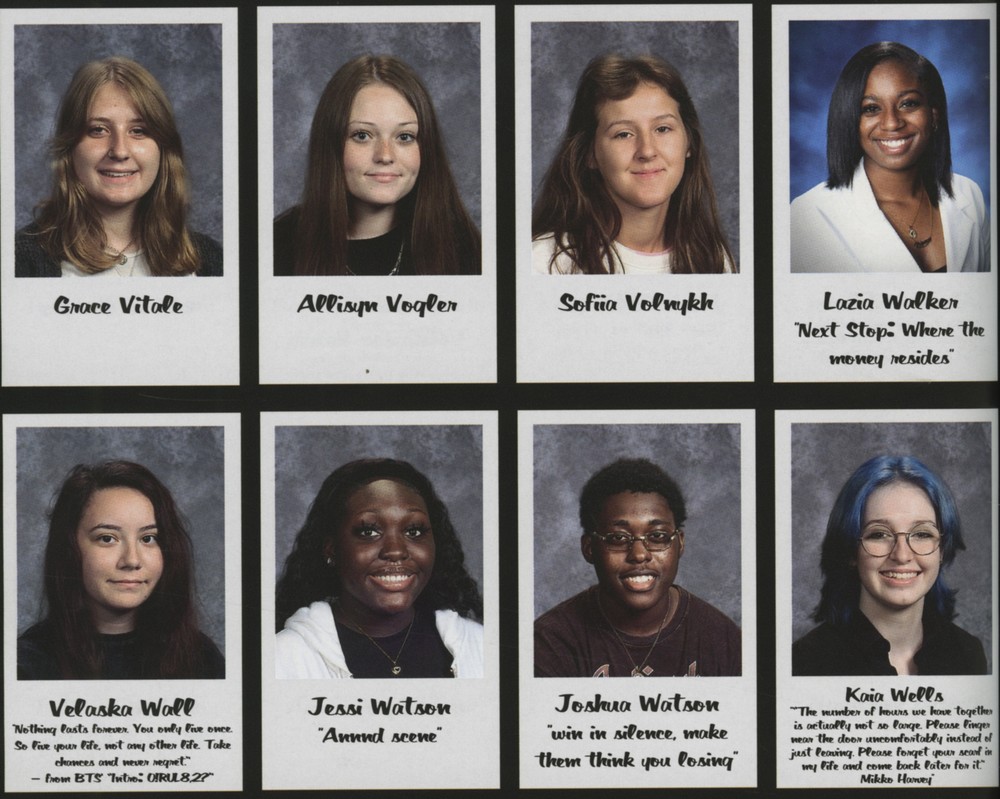 Grace Vitale
Allisyn Vogler
Sofiia Volnykh
Lazia Walker
"Next Stop: Where the
money resides"
Velaska Wall
"Nothing lasts forever. You only live once.
So live your life, not any other life. Take
chances and never regret."
– from BTS "Intro: O!RUL8,2?"
Jessi Watson
"Annnd scene"
Joshua Watson
"win in silence, make
them think you losing"
Kaia Wells
"The number of hours we have together
is actually not so large. Please linger
near the door uncomfortably instead of
just leaving. Please forget your scarf in
my life and come back later for it."
Mikko Harvey